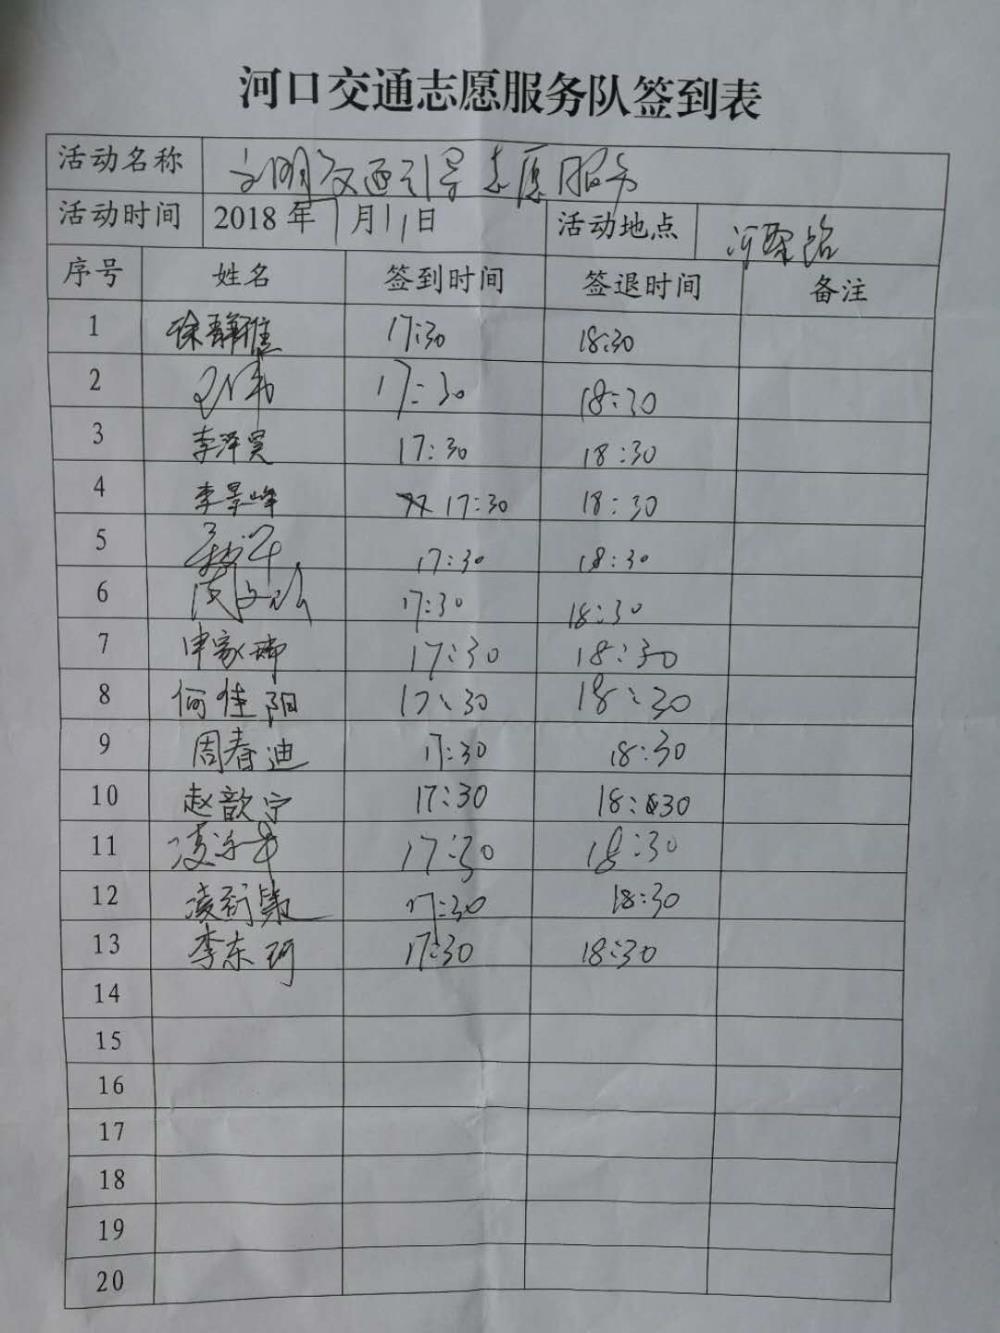 河口交通志愿服务队签到表
活动名称 文明交通引导志愿服务
活动时间 2018年7月11日 活动地点 河聚路
序号 姓名 签到时间 签退时间 备注
1 徐静佳 17:30 18:30
2 17:30 18:30
3 李泽昊 17:30 18:30
4 李景峰 17:30 18:30
5 17:30 18:30
6 17:30 18:30
7 申家瑞 17:30 18:30
8 何佳阳 17:30 18:30
9 周春迪 17:30 18:30
10 赵歆宁 17:30 18:30
11 17:30 18:30
12 17:30 18:30
13 李东珂 17:30 18:30
14
15
16
17
18
19
20